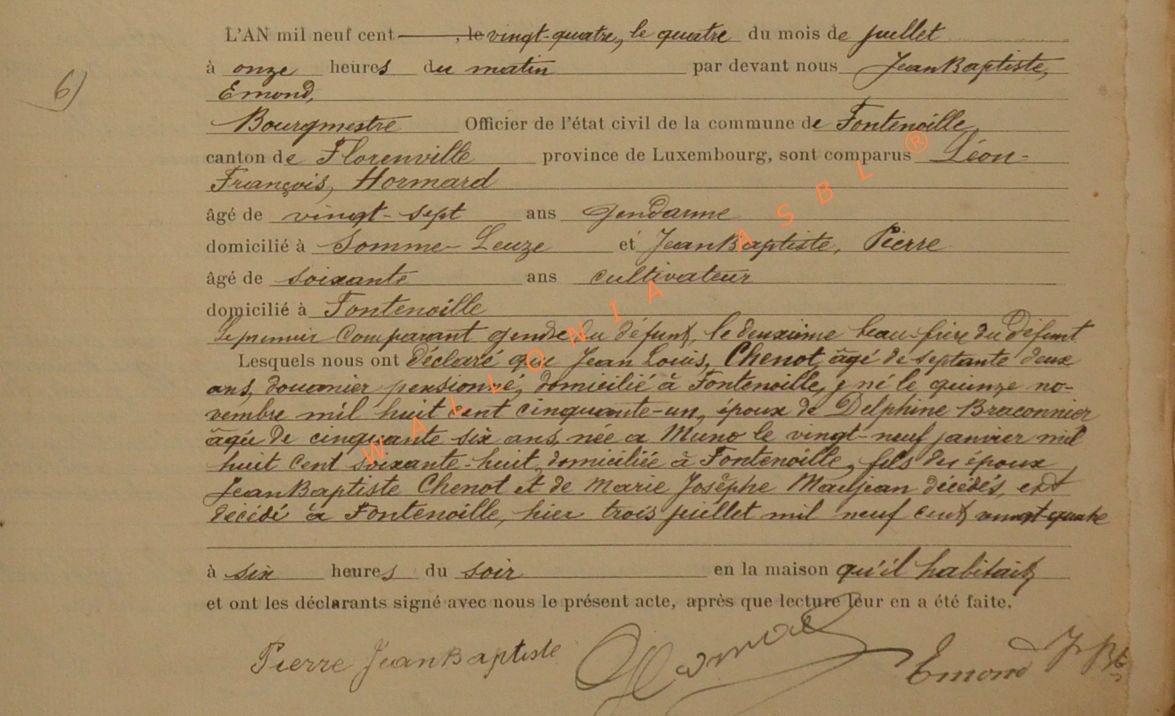 6)
L'AN mil neuf cent ———, le vingt-quatre, le quatre du mois de juillet
à onze heures du matin par devant nous Jean Baptiste,
Emond,
Bourgmestre Officier de l'état civil de la commune de Fontenoille
canton de Florenville province de Luxembourg, sont comparus Léon-
François, Hormard
âgé de vingt-sept ans gendarme
domicilié à Somme-Leuze et Jean Baptiste, Pierre
âgé de soixante ans cultivateur
domicilié à Fontenoille
Le premier comparant gendre du défunt, le deuxième beau-frère du défunt
Lesquels nous ont déclaré que Jean Louis, Chenot, âgé de septante deux
ans, douanier pensionné, domicilié à Fontenoille, y né le quinze no-
vembre mil huit cent cinquante-un, époux de Delphine Braconnier
âgée de cinquante six ans, née à Muno le vingt-neuf janvier mil
huit cent soixante-huit, domiciliée à Fontenoille, fils des époux
Jean Baptiste Chenot et de Marie Josèphe Maujean décédés, est
décédé à Fontenoille, hier trois juillet mil neuf cent vingt-quatre
à six heures du soir en la maison qu'il habitait
et ont les déclarants signé avec nous le présent acte, après que lecture leur en a été faite.
Pierre Jean Baptiste Hormard Emond J Bte
WALLONIA ASBL ®